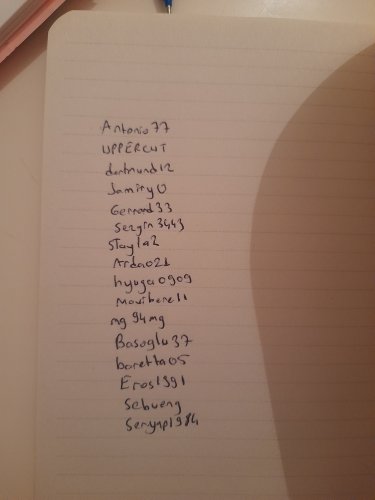 Antonio77
UPPERCUT
dortmund12
Jamiry0
Gerrard33
Sezgin3443
Stayla2
Arda021
hyuga0909
Mavibere11
ng94mg
Basoglu37
baretta05
Eros1991
Sebueng
Serynp1984